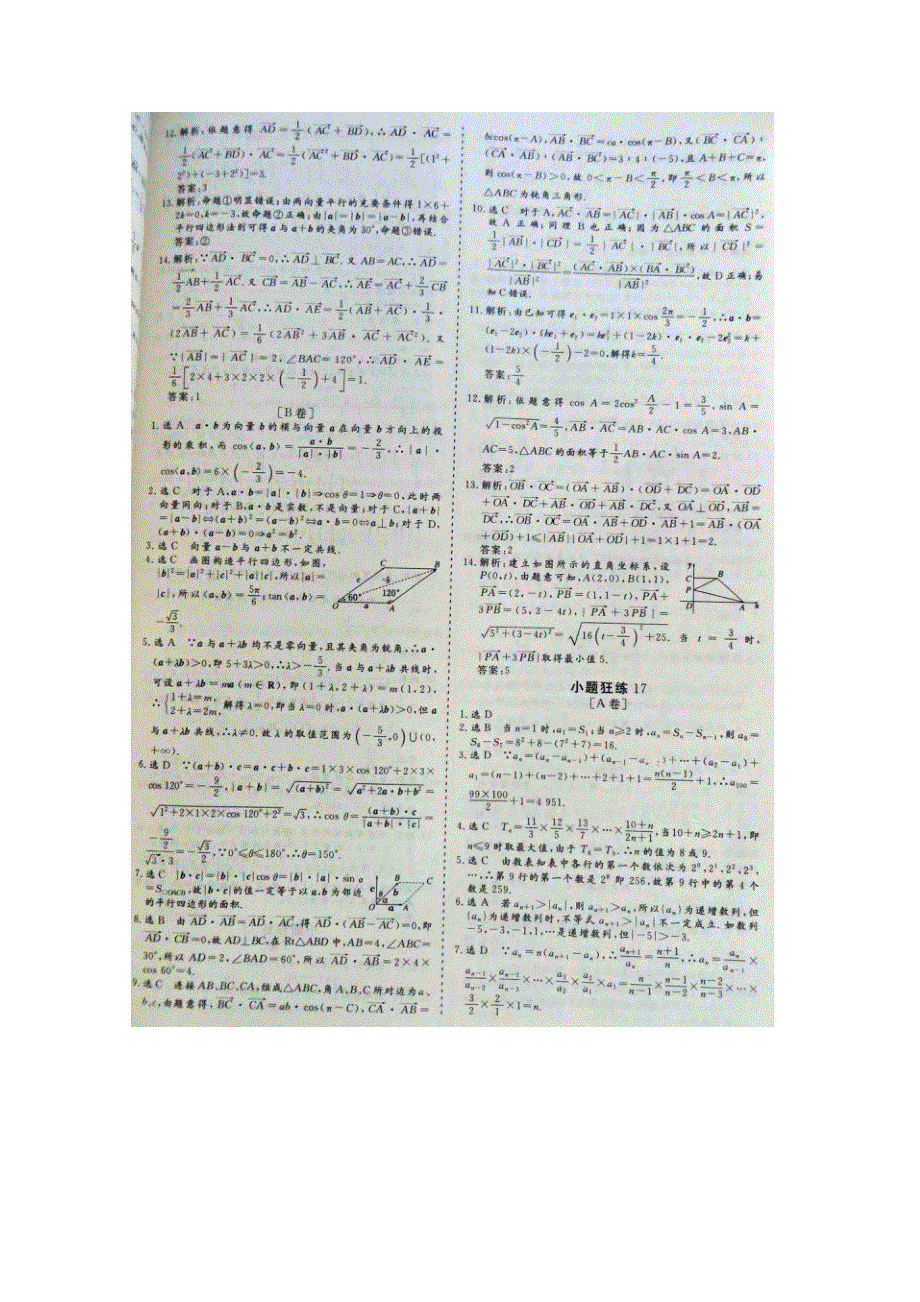 12.解析:依题意得 AD=1/2(AC+BD),∴AD·AC=
1/2(AC+BD)·AC=1/2(AC²+BD·AC)=1/2[(1²+
2²)+(-3+2²)]=3.
答案:3
13.解析:命题①明显错误;由两向量平行的充要条件得 1×6+
2k=0,k=-3,故命题②正确;由|a|=|b|=|a-b|,再结合
平行四边形法则可得 a 与 a+b 的夹角为 30°,命题③错误.
答案:②
14.解析:∵AD·BC=0,∴AD⊥BC.又 AB=AC,∴AD=
1/2AB+1/2AC.又 CB=AB-AC,∴AE=AC+2/3CB
=2/3AB+1/3AC,∴AD·AE=1/2(AB+AC)·1/3·
(2AB+AC)=1/6(2AB²+3AB·AC+AC²).又
∵|AB|=|AC|=2,∠BAC=120°,∴AD·AE=
1/6[2×4+3×2×2×(-1/2)+4]=1.
答案:1
[B卷]
1.选 A a·b 为向量 b 的模与向量 a 在向量 b 方向上的投
影的乘积,而 cos⟨a,b⟩=a·b/(|a|·|b|)=-2/3,∴|a|·
cos⟨a,b⟩=6×(-2/3)=-4.
2.选 C 对于 A,a·b=|a|·|b|⇒cos θ=1⇒θ=0,此时两
向量同向;对于 B,a·b 是实数,不是向量;对于 C,|a+b|
=|a-b|⇔(a+b)²=(a-b)²⇔a·b=0⇔a⊥b;对于 D,
(a+b)·(a-b)=0⇒a²=b².
3.选 C 向量 a-b 与 a+b 不一定共线.
4.选 C 画图构造平行四边形,如图,
|b|²=|a|²+|c|²+|a||c|,所以|a|=
|c|,所以⟨a,b⟩=5π/6;tan⟨a,b⟩=
-√3/3.
C B c -b 60° 120° O a A
5.选 A ∵a 与 a+λb 均不是零向量,且其夹角为锐角,∴a·
(a+λb)>0,即 5+3λ>0,∴λ>-5/3,当 a 与 a+λb 共线时,
可设 a+λb=ma(m∈R),即(1+λ,2+λ)=m(1,2),
∴{1+λ=m, 2+λ=2m, 解得 λ=0,即当 λ=0 时,a·(a+λb)>0,但 a
与 a+λb 共线,∴λ≠0.故 λ 的取值范围为(-5/3,0)∪(0,
+∞).
6.选 D ∵(a+b)·c=a·c+b·c=1×3×cos 120°+2×3×
cos 120°=-9/2,|a+b|=√(a+b)²=√a²+2a·b+b²=
√1²+2×1×2×cos 120°+2²=√3,∴cos θ=(a+b)·c/(|a+b|·|c|)=
(-9/2)/(√3·3)=-√3/2,∵0°≤θ≤180°,∴θ=150°.
7.选 C |b·c|=|b|·|c||cos θ=|b|·|a|·sin α
=S▱OACB,故|b·c|的值一定等于以 a,b 为邻边
的平行四边形的面积.
c B C b θ α O a A
8.选 B 由 AD·AB=AD·AC,得 AD·(AB-AC)=0,即
AD·CB=0,故 AD⊥BC,在 Rt△ABD 中,AB=4,∠ABC=
30°,所以 AD=2,∠BAD=60°,所以 AD·AB=2×4×
cos 60°=4.
9.选 C 连接 AB、BC、CA,组成△ABC,角 A、B、C 所对边为 a、
b、c,由题意得,BC·CA=ab·cos(π-C),CA·AB=
bccos(π-A),AB·BC=ca·cos(π-B),又(BC·CA):
(CA·AB):(AB·BC)=3:4:(-5),且 A+B+C=π,
则 cos(π-B)>0,故 0<π-B<π/2,即π/2<B<π,所以
△ABC 为钝角三角形.
10.选 C 对于 A,AC·AB=|AC|·|AB|·cos A=|AC|²,
故 A 正确;同理 B 也正确;因为△ABC 的面积 S=
1/2|AB|·|CD|=1/2|AC|·|BC|,所以|CD|²=
|AC|²·|BC|²/|AB|²=(AC·AB)×(BA·BC)/|AB|²,故 D 正确;易
知 C 错误.
11.解析:由已知可得 e₁·e₂=1×1×cos 2π/3=-1/2,∴a·b=
(e₁-2e₂)·(ke₁+e₂)=ke₁²+(1-2k)·e₁·e₂-2e₂²=k+
(1-2k)×(-1/2)-2=0,解得 k=5/4.
答案:5/4
12.解析:依题意得 cos A=2cos² A/2-1=3/5,sin A=
√1-cos²A=4/5,AB·AC=AB·AC·cos A=3,AB·
AC=5,△ABC 的面积等于1/2AB·AC·sin A=2.
答案:2
13.解析:OB·OC=(OA+AB)·(OD+DC)=OA·OD
+OA·DC+AB·OD+AB·DC,又 OA⊥OD,AB=
DC,∴OB·OC=OA·AB+OD·AB+1=AB·(OA
+OD)+1≤|AB||OA+OD|+1=1×1+1=2.
答案:2
14.解析:建立如图所示的直角坐标系,设
P(0,t),由题意可知,A(2,0),B(1,1),
PA=(2,-t),PB=(1,1-t),PA+
3PB=(5,3-4t),|PA+3PB|=
√5²+(3-4t)²=√16(t-3/4)²+25. 当 t=3/4 时,
|PA+3PB|取得最小值 5.
答案:5
y C B P D A x
小题狂练 17
[A卷]
1.选 D
2.选 B 当 n=1 时,a₁=S₁;当 n≥2 时,aₙ=Sₙ-Sₙ₋₁,则 a₈=
S₈-S₇=8²+8-(7²+7)=16.
3.选 D ∵aₙ=(aₙ-aₙ₋₁)+(aₙ₋₁-aₙ₋₂)+…+(a₂-a₁)+
a₁=(n-1)+(n-2)+…+2+1+1=n(n-1)/2+1,∴a₁₀₀=
99×100/2+1=4 951.
4.选 C Tₙ=11/3×12/5×13/7×…×(10+n)/(2n+1),当 10+n≥2n+1,即
n≤9 时取最大值,由于 T₈=T₉.∴n 的值为 8 或 9.
5.选 C 由数表知表中各行的第一个数依次为 2⁰,2¹,2²,2³,
…,∴第 9 行的第一个数是 2⁸ 即 256,故第 9 行中的第 4 个
数是 259.
6.选 A 若 aₙ₊₁>|aₙ|,则 aₙ₊₁>aₙ,所以{aₙ}为递增数列,但
{aₙ}为递增数列时,不等式 aₙ₊₁>|aₙ|不一定成立.如数列
-5,-3,-1,1,…是递增数列,但|-5|>-3.
7.选 D ∵aₙ=n(aₙ₊₁-aₙ),∴aₙ₊₁/aₙ=(n+1)/n,∴aₙ=aₙ/aₙ₋₁×
aₙ₋₁/aₙ₋₂×aₙ₋₂/aₙ₋₃×…×a₃/a₂×a₂/a₁×a₁=n/(n-1)×(n-1)/(n-2)×(n-2)/(n-3)×…×
3/2×2/1×1=n.